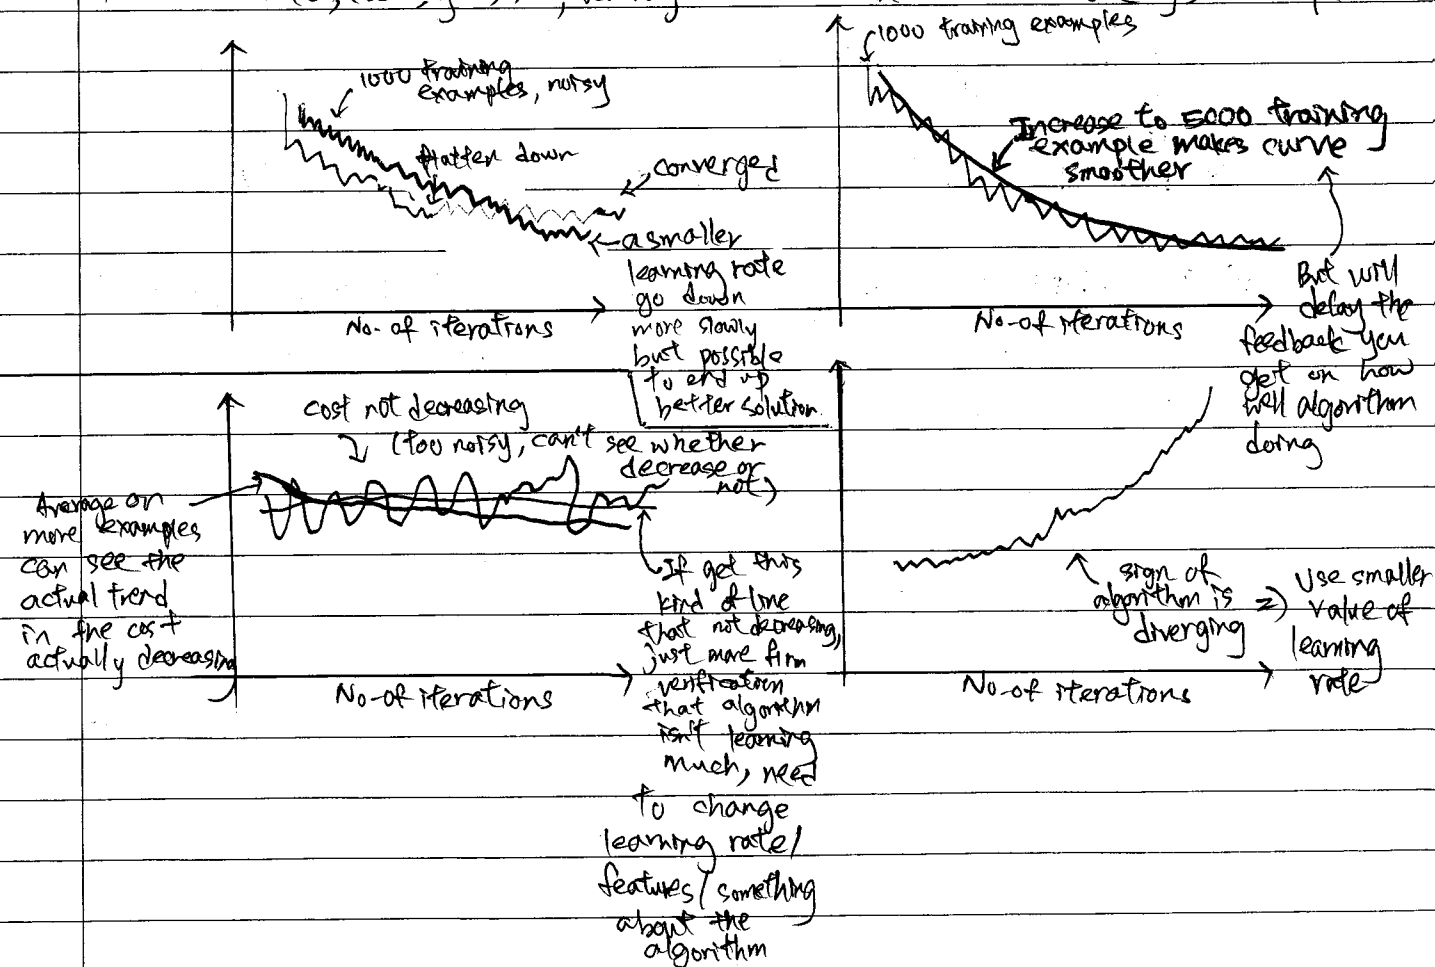 1000 training
examples, noisy
flatten down
converged
a smaller
learning rate
go down
more slowly
but possible
to end up
better solution
No. of iterations
1000 training examples
Increase to 5000 training
example makes curve
smoother
But will
delay the
feedback you
get on how
well algorithm
doing
No. of iterations
cost not decreasing
(too noisy, can't see whether
decrease or
not)
Average on
more examples
can see the
actual trend
in the cost
actually decreasing
If get this
kind of line
that not decreasing,
just more firm
verification
that algorithm
isn't learning
much, need
to change
learning rate/
features/something
about the
algorithm
No. of iterations
sign of
algorithm is
diverging
=> Use smaller
value of
learning
rate
No. of iterations